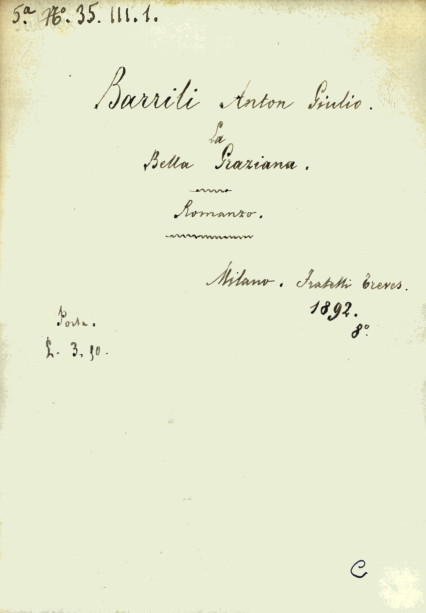 5.ª Nº. 35. III. 1.
Barrili Anton Giulio.
La
Bella Graziana.
Romanzo.
Milano. Fratelli Treves.
1892.
8º.
L. 3,50.
C